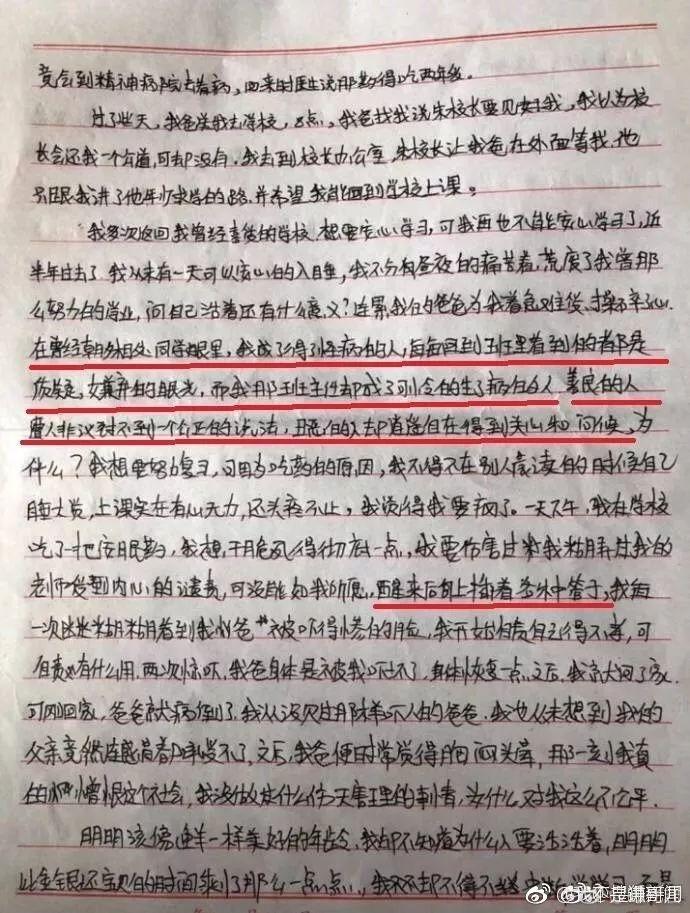 竟会到精神病院去看病，回来时医生说那药得吃两年级。
过了些天，我爸送我去学校，8点，我爸找我说朱校长要见女子我，我以为校
长会还我一个公道，可却没有，我去到校长办公室，朱校长让我爸在外面等我，他
只跟我讲了他年少求学的路，并希望我能回到学校上课。
我多次返回我曾经喜爱的学校，想要安心学习，可我再也不能安心学习了，近
半年过去了，我从未有一天可以安心的入睡，我不分白昼夜的痛苦着，荒废了我曾那
么努力的学业，问自己活着还有什么意义？连累我的爸爸为我着急难受、操碎了心。
在曾经朝夕相处同学眼里，我成了得了怪病的人，每每回到班里看到的都是
质疑，嫌弃的眼光，而我那班主任却成了可怜的生了病的人，善良的人
遭人非议得不到一个公正的说法，丑恶的人却逍遥自在得到关心和问候，为
什么？我想要努力复习，可因为吃药的原因，我不得不在别人晨读的时候自己
睡大觉，上课实在有心无力，还头疼不止，我觉得我要疯了。一天下午，我在学校
吃了一把安眠药，我想，干脆死得彻底一点，我要伤害过我玷辱过我的
老师发至内心的谴责，可没能如我所愿，醒来后身上插着各外中管子，我每
一次迷迷糊糊看到我爸爸被吓得惨白的脸，我开始自责自己得不孝，可
自责又有什么用，两次惊吓，我爸身体是被我吓坏了，身体恢复一点之后，我就回了家，
可刚回家，爸爸就病倒了，我从没见过那样吓人的爸爸，我也从未想到我的
父亲竟然连感冒都承受不了，之后，我爸便时常觉得胸闷头晕，那一刻我真
的恨憎恨这个社会，我没做过什么伤天害理的事情，为什么对我这么不公平。
明明该像鲜花一样美好的年龄，我却不知道为什么人要活活着，明明
比金银还宝贵的时间剩了那么一点点，我不